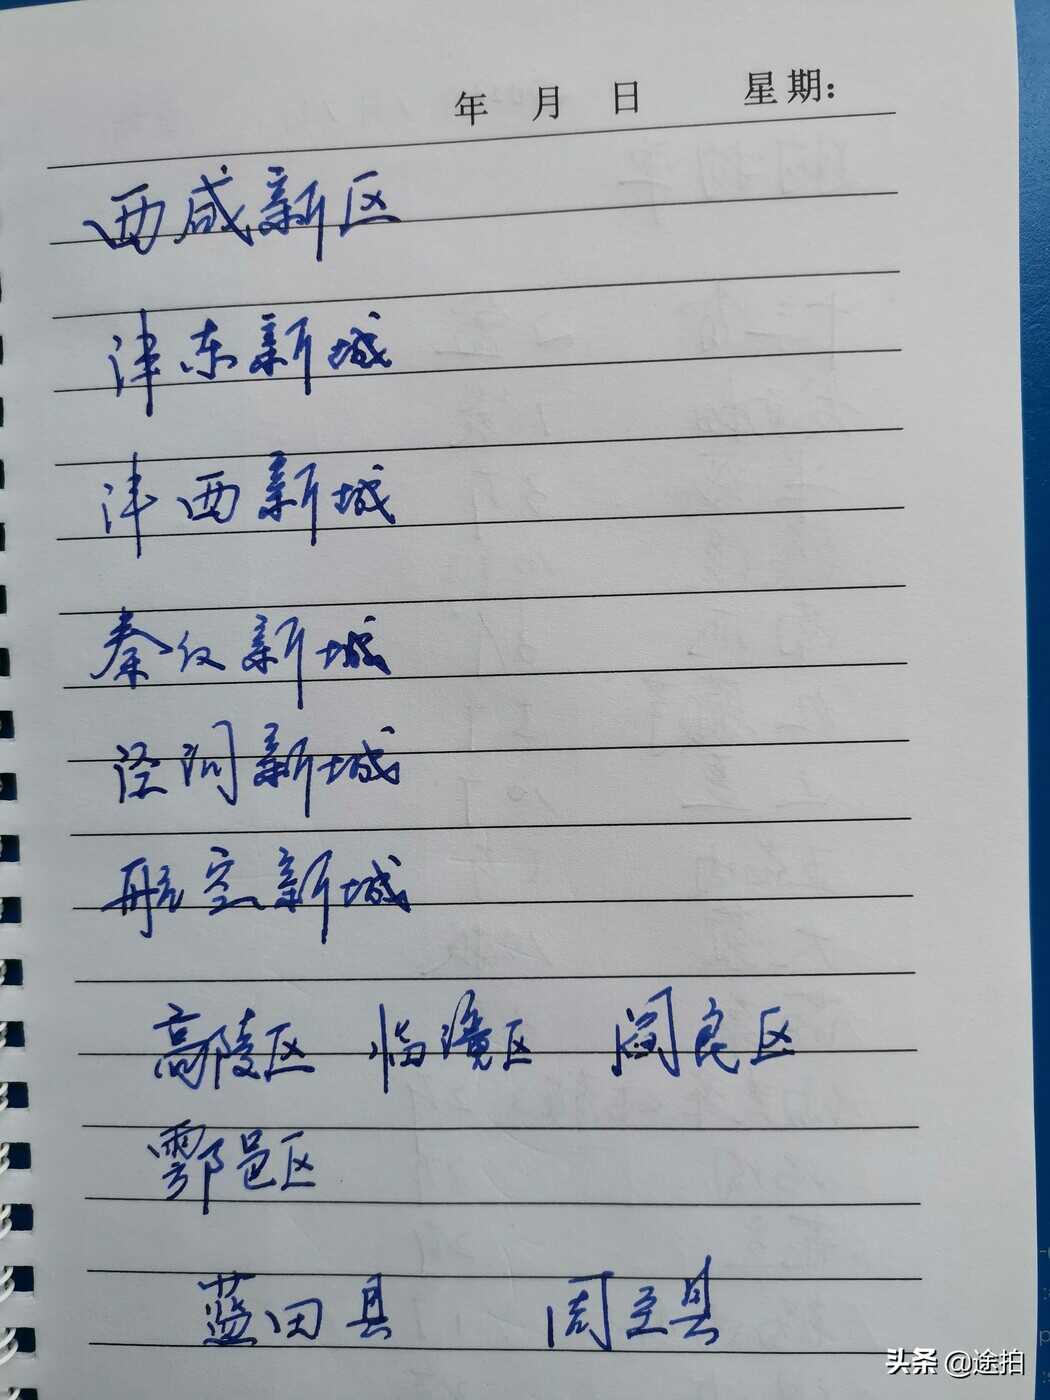 年 月 日 星期:
西咸新区
沣东新城
沣西新城
秦汉新城
泾河新城
航空新城
高陵区 临潼区 阎良区
鄠邑区
蓝田县 周至县
头条 @途拍